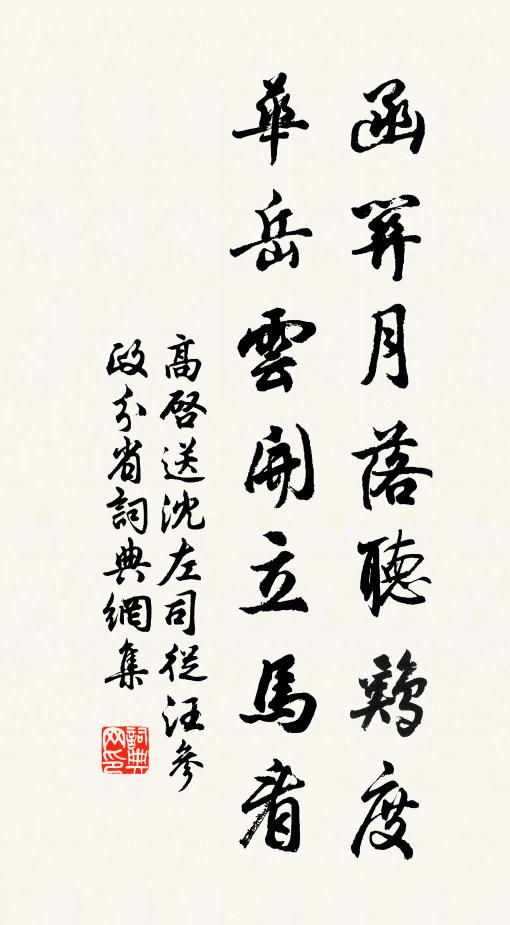 函關月落聽鷄度
華岳雲開立馬看
高啓送沈左司從汪參
政分省詞典網集
詞典网印